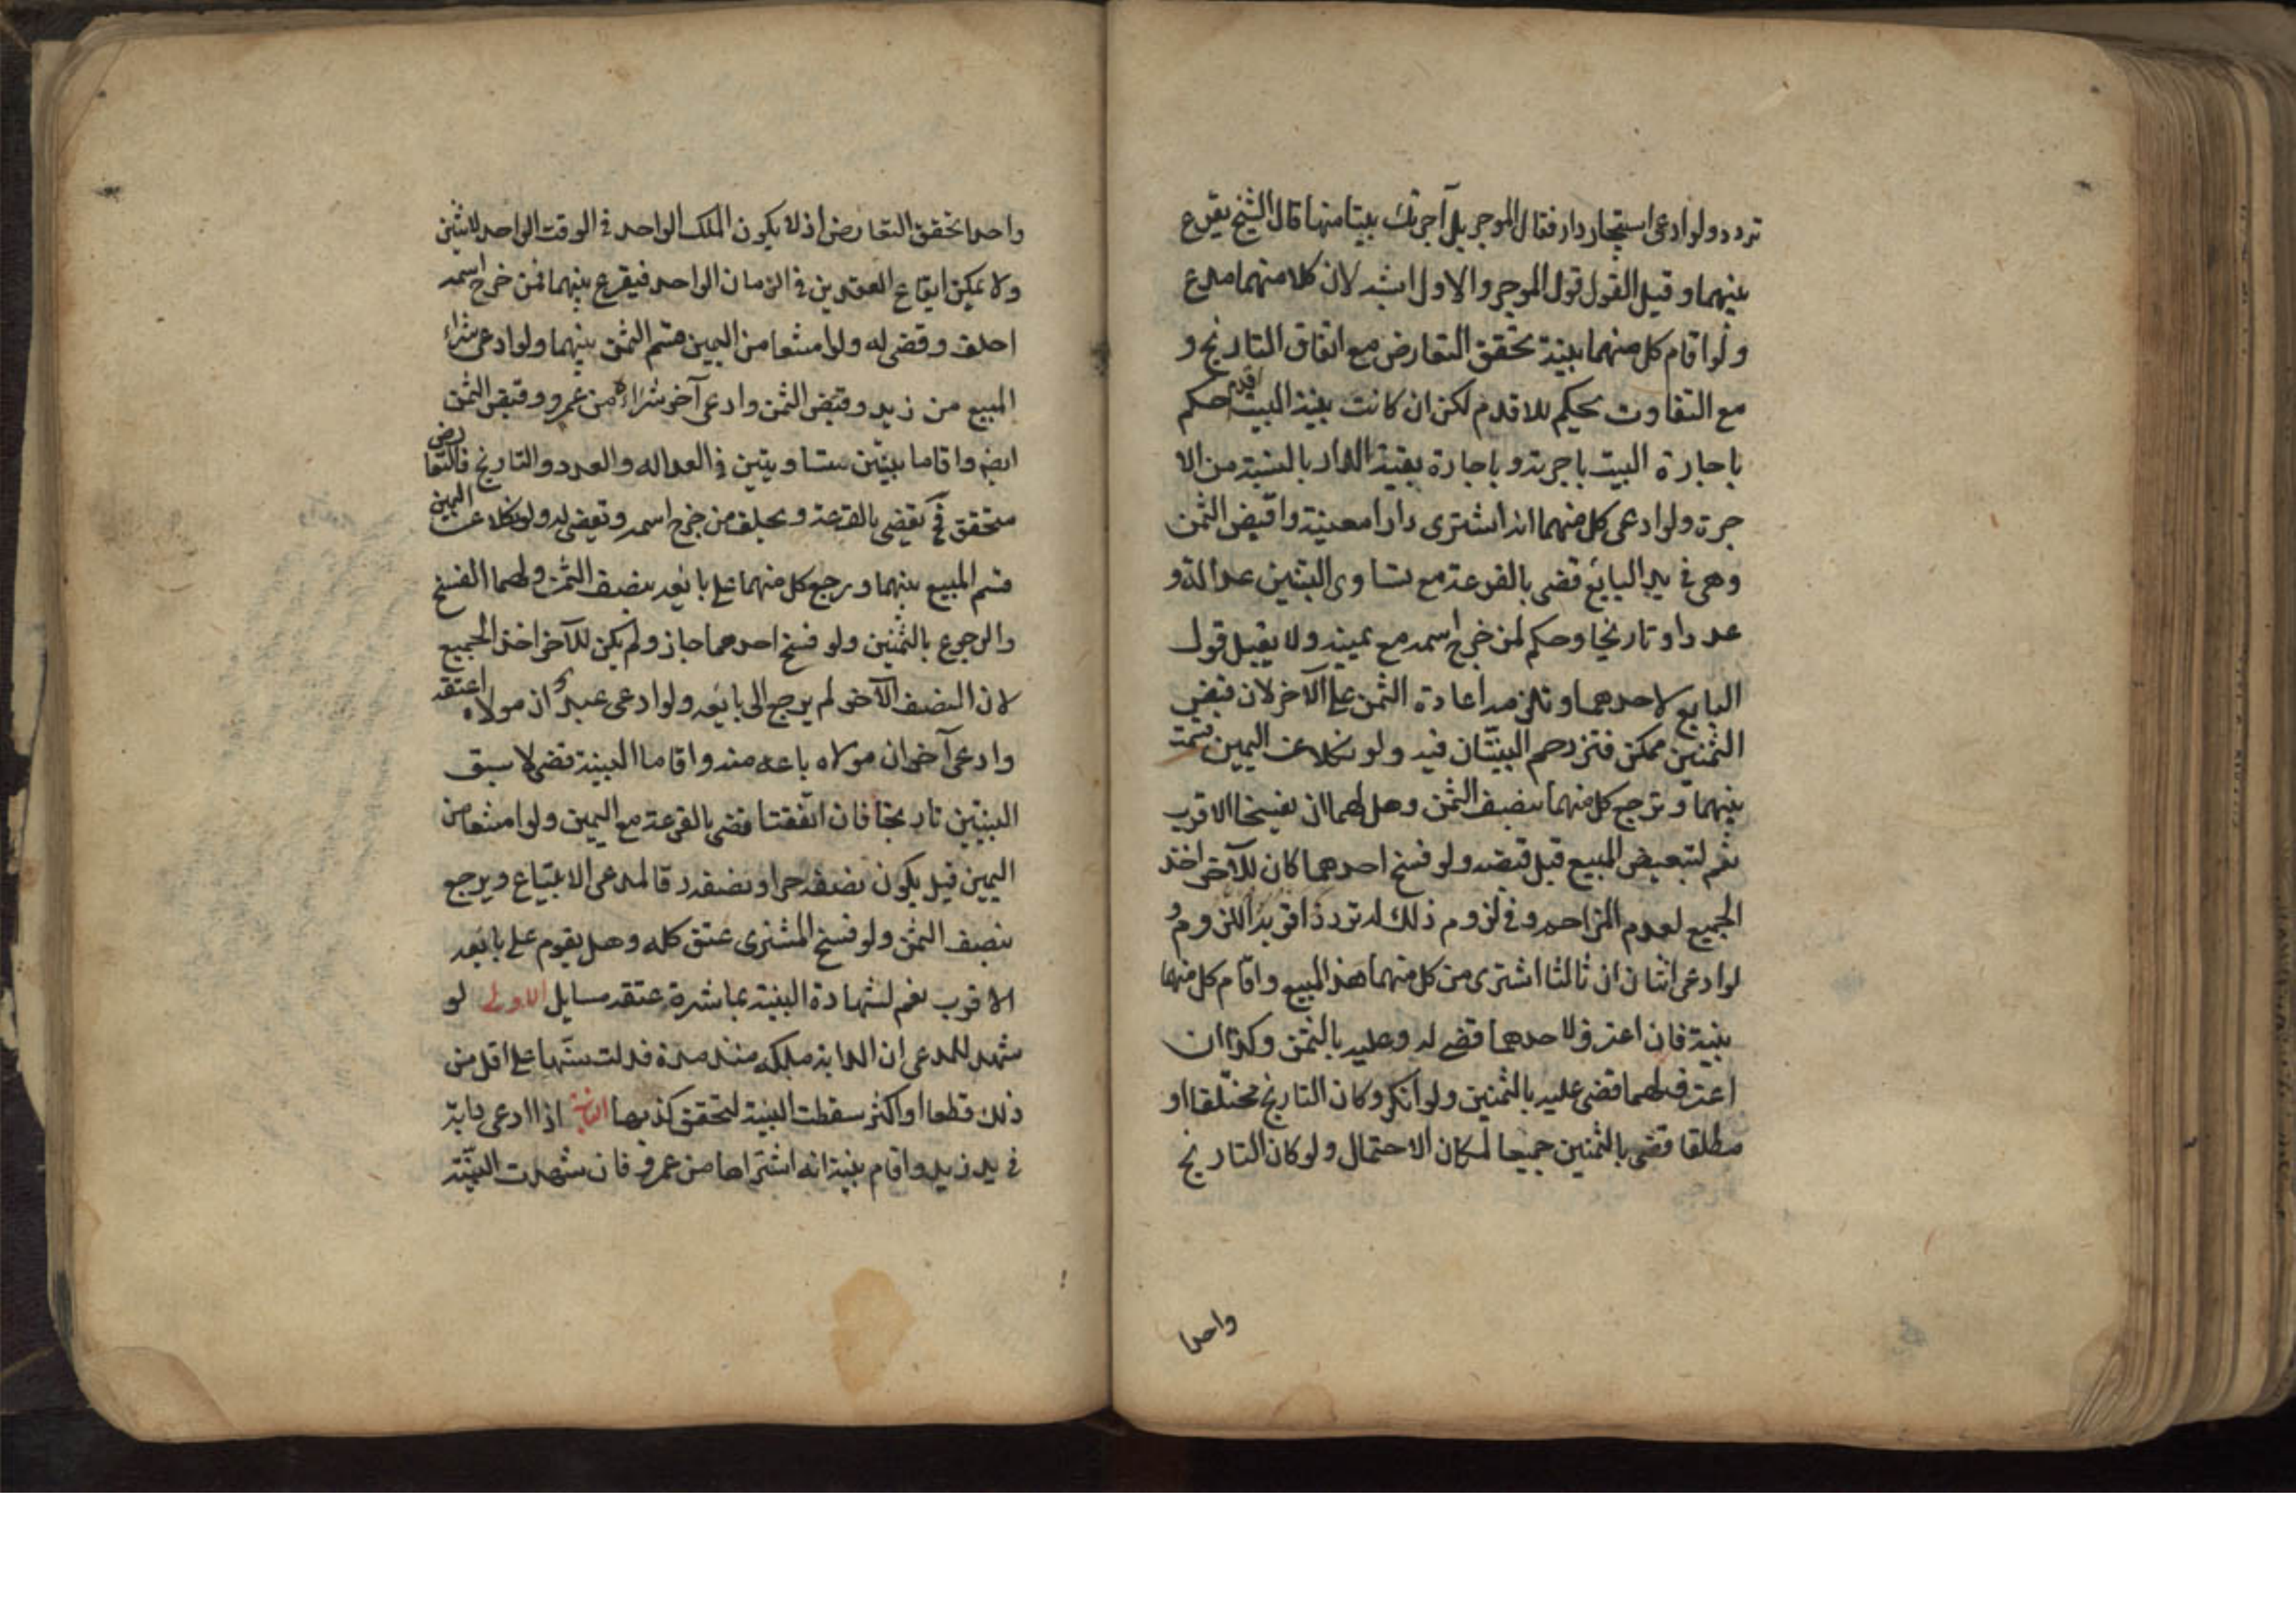 تردد ولو ادعى استيجار دار فقال الموجر بل آجرتك بيتا منها قال الشيخ يقرع
بينهما وقيل القول قول الموجر والاول اشبه لان كلا منهما مدع
ولو اقام كل منهما بينة تحقق التعارض مع اتفاق التاريخ و
مع التفاوت يحكم للاقدم لكن ان كانت بينة البيت اقدم حكم
باجارة البيت باجرته وباجارة بقية الدار بالنسبة من الا
جرة ولو ادعى كل منهما انه اشترى دارا معينة واقبض الثمن
وهى في يد البايع قضى بالقرعة مع تساوى البينتين عدالة و
عددا وتاريخا وحكم لمن خرج اسمه مع يمينه ولا يقبل قول
البايع لاحدهما وتلزمه اعادة الثمن على الآخر لان قبض
الثمنين ممكن فتزدحم البينتان فيه ولو نكلا عن اليمين قسمت
بينهما ويرجع كل منهما بنصف الثمن وهل لهما ان يفسخا الاقرب
نعم لتبعيض المبيع قبل قبضه ولو فسخ احدهما كان للآخر اخذ
الجميع لعدم المزاحم وفي لزوم ذلك له تردد اقربه اللزوم و
لو ادعى اثنان ان ثالثا اشترى من كل منهما هذا المبيع واقام كل منهما
بينة فان اعترف لاحدهما قضى له وعليه بالثمن وكذا ان
اعترف لهما قضى عليه بالثمنين ولو انكر وكان التاريخ مختلفا او
مطلقا قضى بالثمنين جميعا لمكان الاحتمال ولو كان التاريخ
واحدا
واحدا تحقق التعارض اذ لا يكون الملك الواحد في الوقت الواحد لاثنين
ولا يمكن ايقاع العقدين في الزمان الواحد فيقرع بينهما فمن خرج اسمه
احلف وقضى له ولو امتنعا من اليمين قسم الثمن بينهما ولو ادعى شراء
المبيع من زيد وقبض الثمن وادعى آخر شراءه من عمرو وقبض الثمن
ايضا واقاما بينتين متساويتين في العدالة والعدد والتاريخ فالتعارض
متحقق فح يقضى بالقرعة ويحلف من خرج اسمه ويقضى له ولو نكلا عن اليمين
قسم المبيع بينهما ورجع كل منهما على بايعه بنصف الثمن ولهما الفسخ
والرجوع بالثمنين ولو فسخ احدهما جاز ولم يكن للآخر اخذ الجميع
لان النصف الآخر لم يرجع الى بايعه ولو ادعى عبد ان مولاه اعتقه
وادعى آخر ان مولاه باعه منه واقاما البينة قضى لاسبق
البينتين تاريخا فان اتفقتا قضى بالقرعة مع اليمين ولو امتنعا من
اليمين قيل يكون نصفه حرا ونصفه رقا لمدعى الابتياع ويرجع
بنصف الثمن ولو فسخ المشترى عتق كله وهل يقوم على بايعه
الاقرب نعم لشهادة البينة بمباشرة عتقه مسايل الاولى لو
شهد للمدعى ان الدابة ملكه منذ مدة فدلت سنها على اقل من
ذلك قطعا او اكثر سقطت البينة لتحقق كذبها الثانية اذا ادعى دابة
في يد زيد واقام بينة انه اشتراها من عمرو فان شهدت البينة